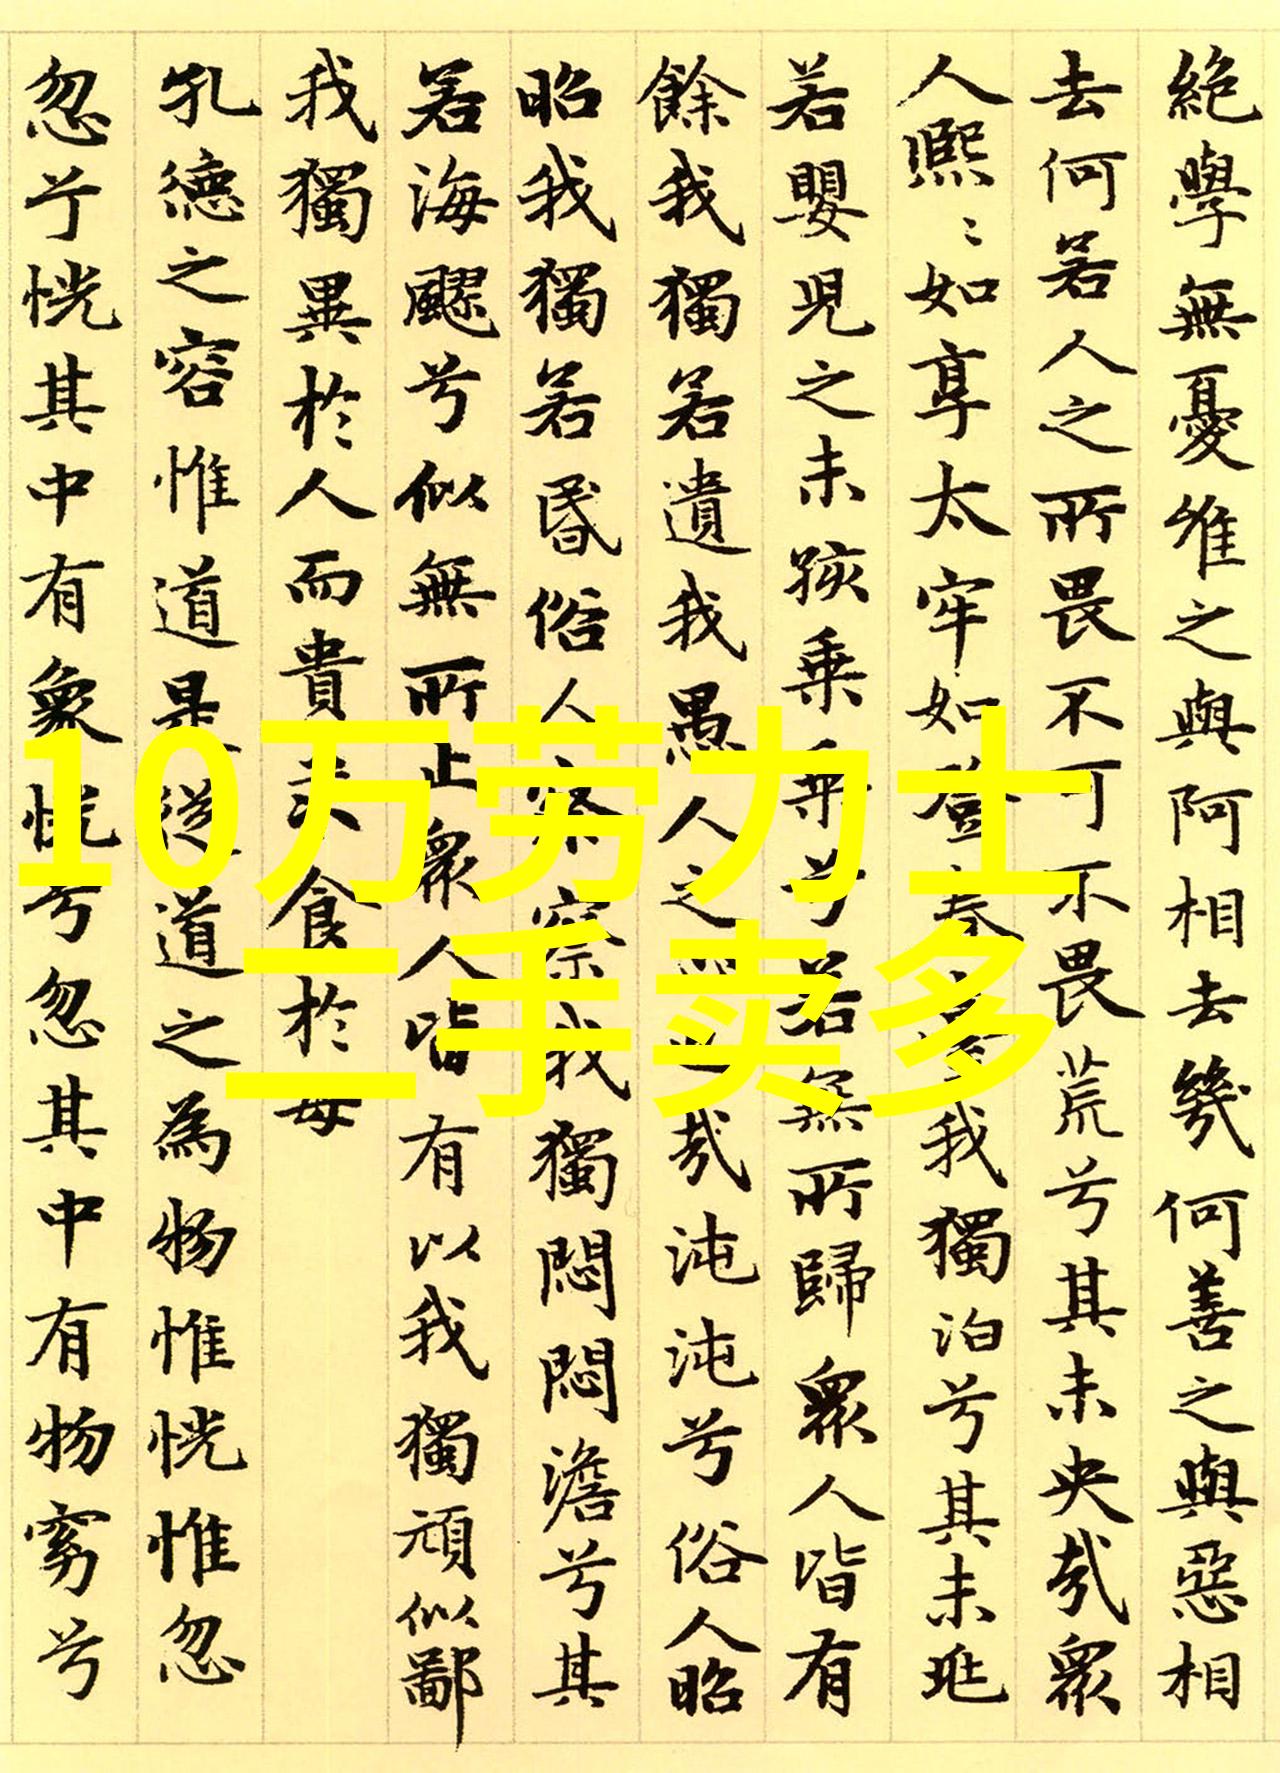 絶學無憂唯之與阿相去幾何善之與惡相
去何若人之所畏不可不畏荒兮其未央哉衆
人熙〻如享太牢如登春臺我獨泊兮其未兆
若嬰兒之未孩乗乗兮若無所歸衆人皆有
餘我獨若遺我愚人之心也哉沌沌兮俗人昭
昭我獨若昏俗人察察我獨悶悶澹兮其
若海飂兮似無所止衆人皆有以我獨頑似鄙
我獨異於人而貴求食於母
孔德之容惟道是從道之為物惟恍惟忽
忽兮恍其中有象恍兮忽其中有物窈兮
10万劳力士
二手卖多